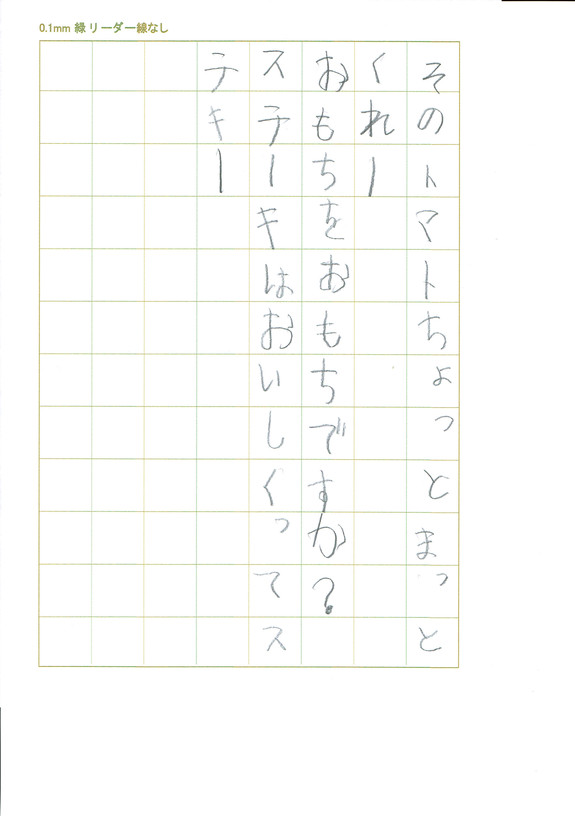 0.1mm 緑 リーダー線なし
そのトマトちょっとまっと
くれー
おもちをおもちですか？
ステーキはおいしくってス
テキー